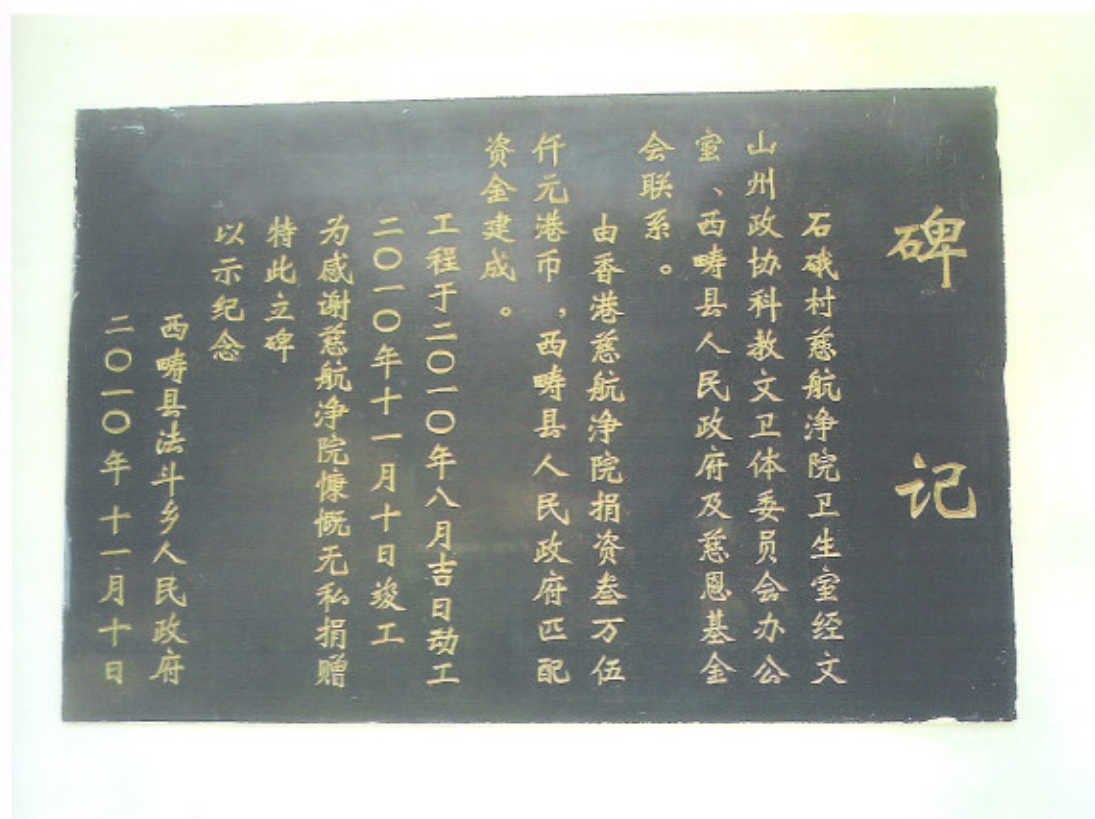 碑记
石硪村慈航净院卫生室经文
山州政协科教文卫体委员会办公
室、西畴县人民政府及慈恩基金
会联系。
由香港慈航净院捐资叁万伍
仟元港币，西畴县人民政府匹配
资金建成。
工程于二〇一〇年八月吉日动工
二〇一〇年十一月十日竣工
为感谢慈航净院慷慨无私捐赠
特此立碑
以示纪念
西畴县法斗乡人民政府
二〇一〇年十一月十日